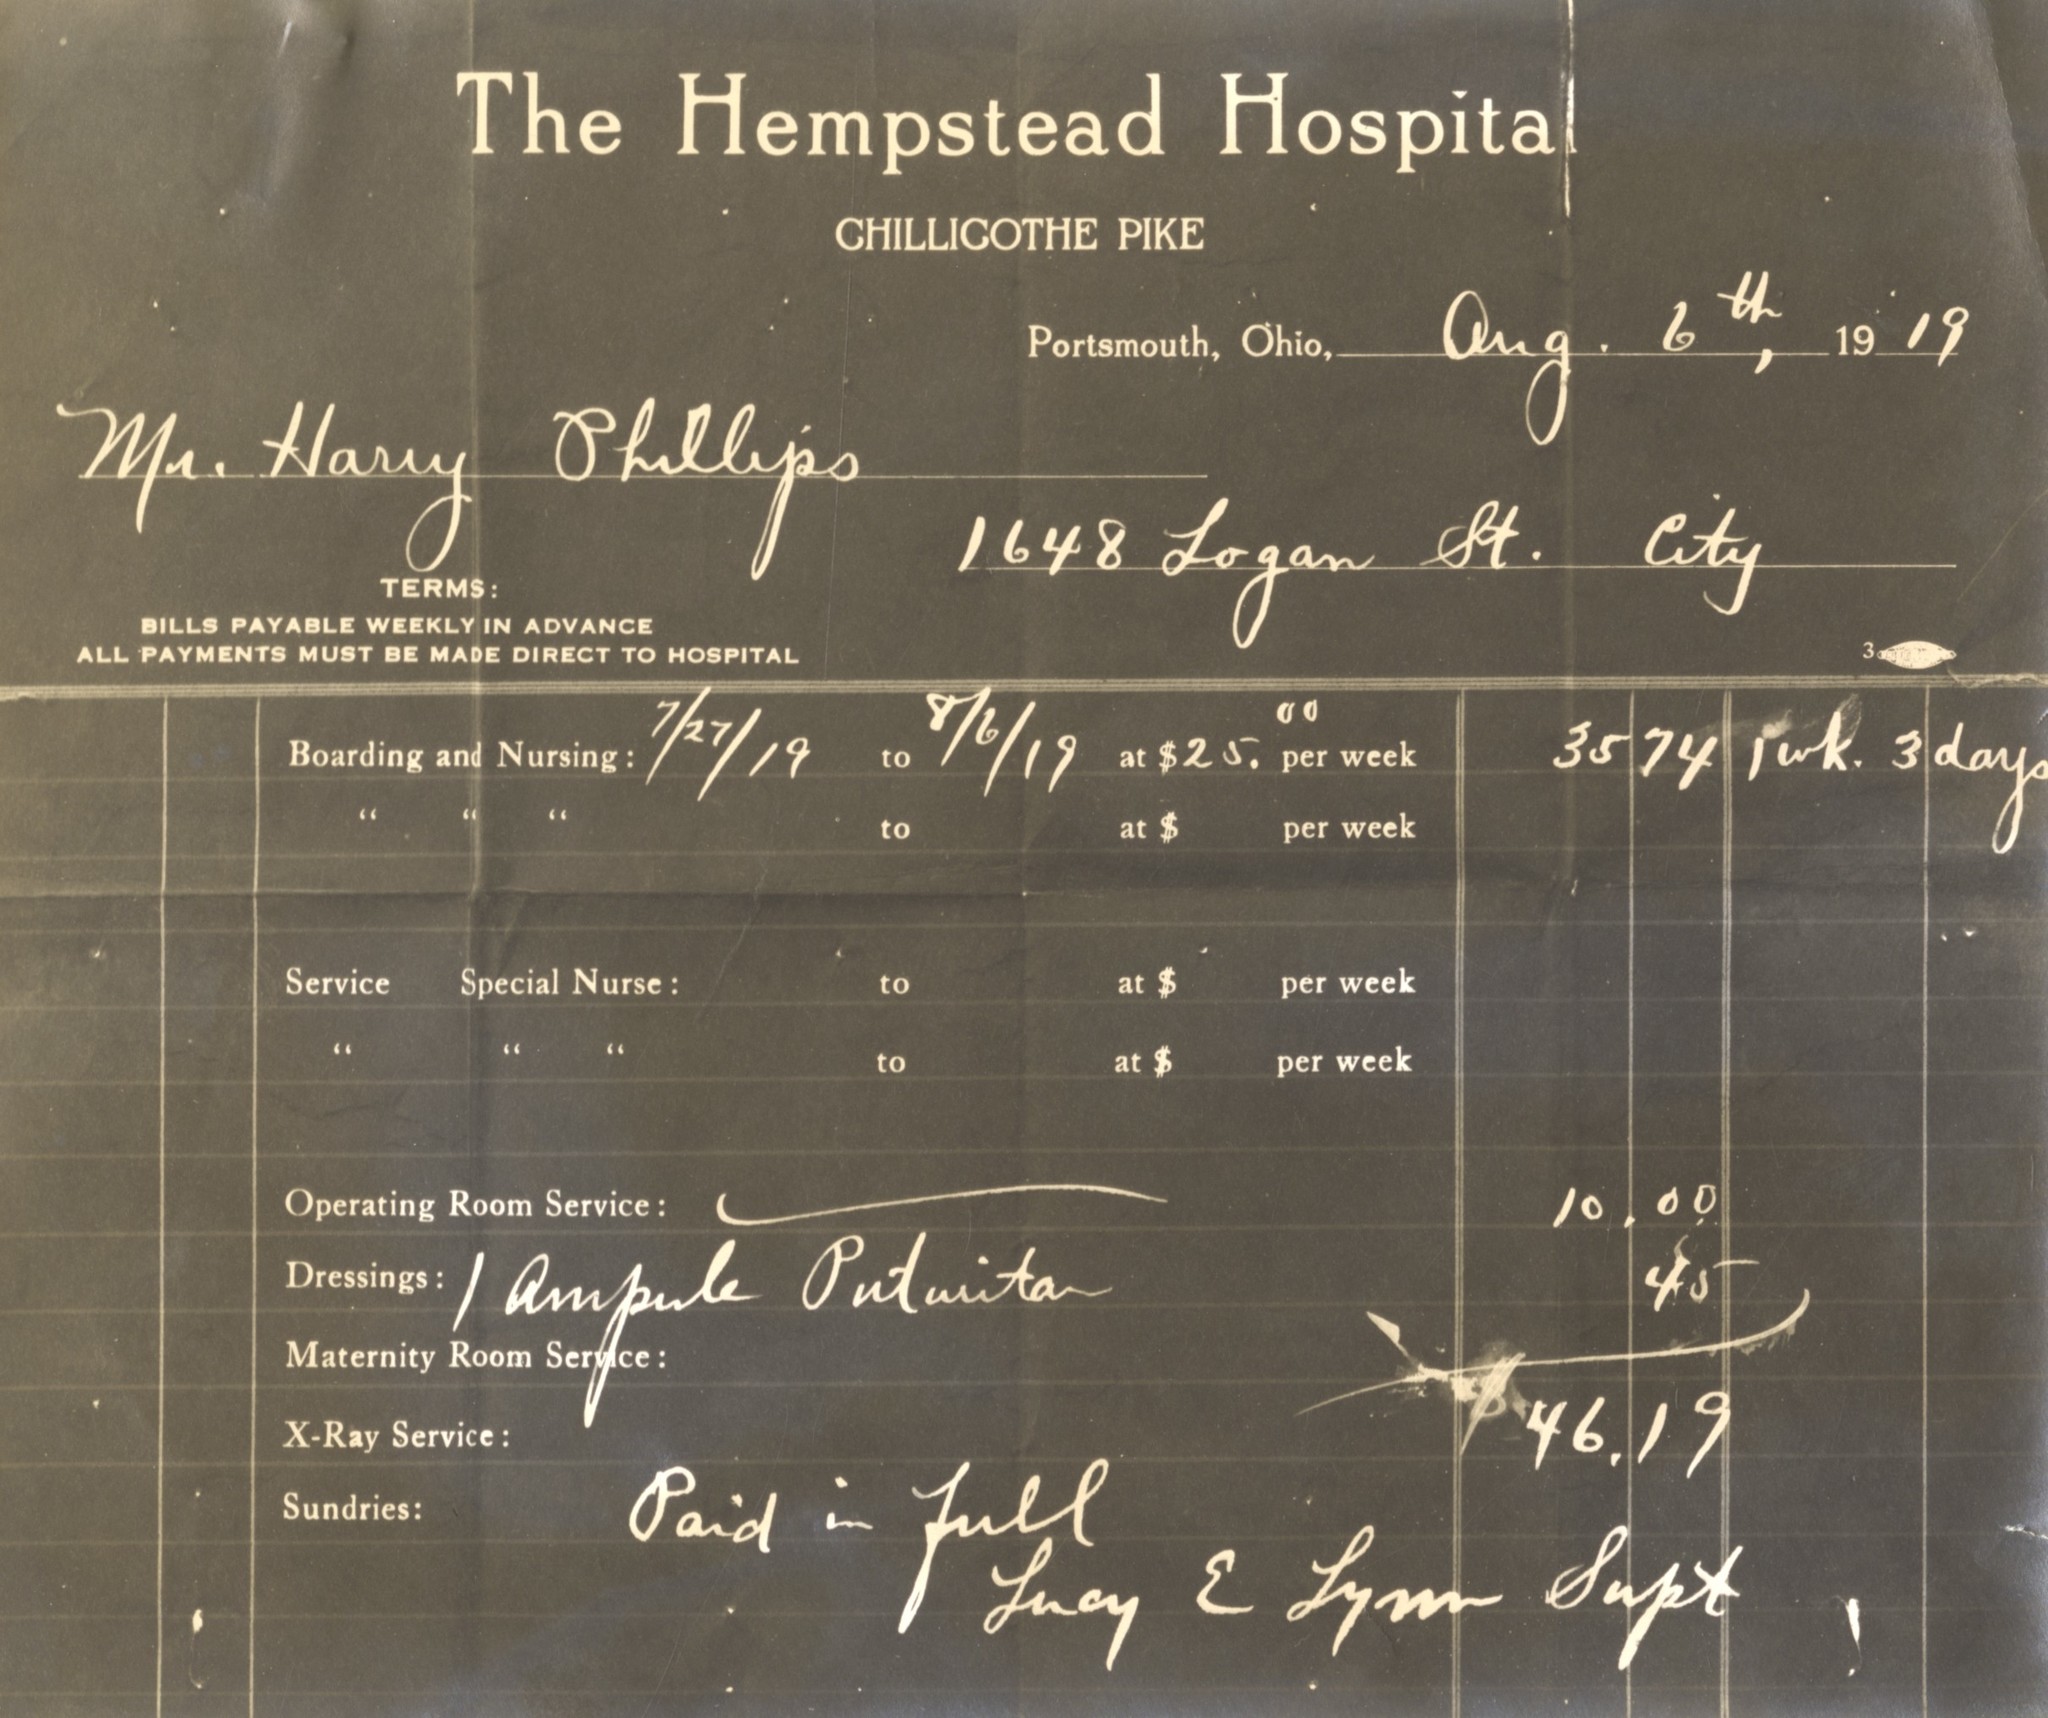 The Hempstead Hospital
CHILLICOTHE PIKE
Portsmouth, Ohio, Aug. 6th, 1919
Mr. Harry Phillips
1648 Logan St. City
TERMS:
BILLS PAYABLE WEEKLY IN ADVANCE
ALL PAYMENTS MUST BE MADE DIRECT TO HOSPITAL
3
Boarding and Nursing: 7/27/19 to 8/6/19 at $25.00 per week 35 74 1 wk. 3 days
" " " to at $ per week
Service Special Nurse: to at $ per week
" " " to at $ per week
Operating Room Service: 10.00
Dressings: 1 Ampule Pituitan 45
Maternity Room Service:
X-Ray Service: $46.19
Sundries: Paid in full
Lucy E Lynn Supt